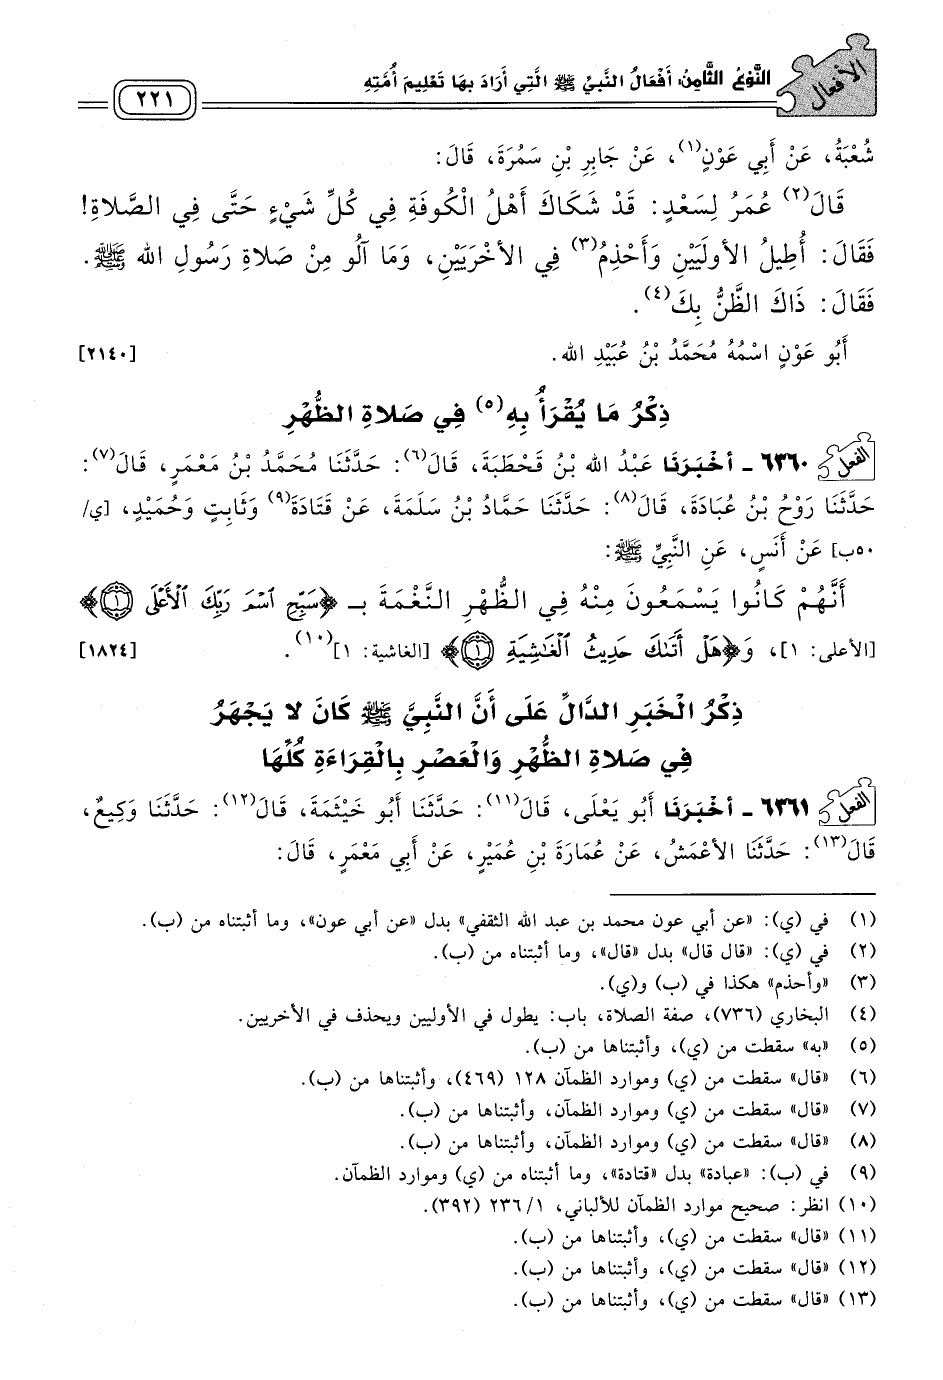 الأفعال
النَّوْعُ الثَّامِنُ: أَفْعَالُ النَّبِيِّ ﷺ الَّتِي أَرَادَ بِهَا تَعْلِيمَ أُمَّتِهِ
٢٢١
شُعْبَةُ، عَنْ أَبِي عَوْنٍ(١)، عَنْ جَابِرِ بْنِ سَمُرَةَ، قَالَ:
قَالَ(٢) عُمَرُ لِسَعْدٍ: قَدْ شَكَاكَ أَهْلُ الْكُوفَةِ فِي كُلِّ شَيْءٍ حَتَّى فِي الصَّلاةِ!
فَقَالَ: أُطِيلُ الأُولَيَيْنِ وَأَحْذِمُ(٣) فِي الأُخْرَيَيْنِ، وَمَا آلُو مِنْ صَلاةِ رَسُولِ الله ﷺ.
فَقَالَ: ذَاكَ الظَّنُّ بِكَ(٤).
أَبُو عَوْنٍ اسْمُهُ مُحَمَّدُ بْنُ عُبَيْدِ الله. [٢١٤٠]
ذِكْرُ مَا يُقْرَأُ بِهِ(٥) فِي صَلاةِ الظُّهْرِ
الفعل ٦٣٦٠ ـ أخْبَرَنَا عَبْدُ الله بْنُ قَحْطَبَةَ، قَالَ(٦): حَدَّثَنَا مُحَمَّدُ بْنُ مَعْمَرٍ، قَالَ(٧):
حَدَّثَنَا رَوْحُ بْنُ عُبَادَةَ، قَالَ(٨): حَدَّثَنَا حَمَّادُ بْنُ سَلَمَةَ، عَنْ قَتَادَةَ(٩) وَثَابِتٍ وَحُمَيْدٍ، [ي/
٥٠ب] عَنْ أَنَسٍ، عَنِ النَّبِيِّ ﷺ:
أَنَّهُمْ كَانُوا يَسْمَعُونَ مِنْهُ فِي الظُّهْرِ النَّغْمَةَ بِـ ﴿سَبِّحِ ٱسْمَ رَبِّكَ ٱلْأَعْلَى ۝١﴾
[الأعلى: ١]، وَ﴿هَلْ أَتَىٰكَ حَدِيثُ ٱلْغَٰشِيَةِ ۝١﴾ [الغاشية: ١](١٠). [١٨٢٤]
ذِكْرُ الْخَبَرِ الدَّالِّ عَلَى أَنَّ النَّبِيَّ ﷺ كَانَ لا يَجْهَرُ
فِي صَلاةِ الظُّهْرِ وَالْعَصْرِ بِالْقِرَاءَةِ كُلِّهَا
الفعل ٦٣٦١ ـ أخْبَرَنَا أَبُو يَعْلَى، قَالَ(١١): حَدَّثَنَا أَبُو خَيْثَمَةَ، قَالَ(١٢): حَدَّثَنَا وَكِيعٌ،
قَالَ(١٣): حَدَّثَنَا الأَعْمَشُ، عَنْ عُمَارَةَ بْنِ عُمَيْرٍ، عَنْ أَبِي مَعْمَرٍ، قَالَ:
(١) في (ي): «عن أبي عون محمد بن عبد الله الثقفي» بدل «عن أبي عون»، وما أثبتناه من (ب).
(٢) في (ي): «قال قال» بدل «قال»، وما أثبتناه من (ب).
(٣) «وأحذم» هكذا في (ب) و(ي).
(٤) البخاري (٧٣٦)، صفة الصلاة، باب: يطول في الأوليين ويحذف في الأخريين.
(٥) «به» سقطت من (ي)، وأثبتناها من (ب).
(٦) «قال» سقطت من (ي) وموارد الظمآن ١٢٨ (٤٦٩)، وأثبتناها من (ب).
(٧) «قال» سقطت من (ي) وموارد الظمآن، وأثبتناها من (ب).
(٨) «قال» سقطت من (ي) وموارد الظمآن، وأثبتناها من (ب).
(٩) في (ب): «عبادة» بدل «قتادة»، وما أثبتناه من (ي) وموارد الظمآن.
(١٠) انظر: صحيح موارد الظمآن للألباني، ١/ ٢٣٦ (٣٩٢).
(١١) «قال» سقطت من (ي)، وأثبتناها من (ب).
(١٢) «قال» سقطت من (ي)، وأثبتناها من (ب).
(١٣) «قال» سقطت من (ي)، وأثبتناها من (ب).